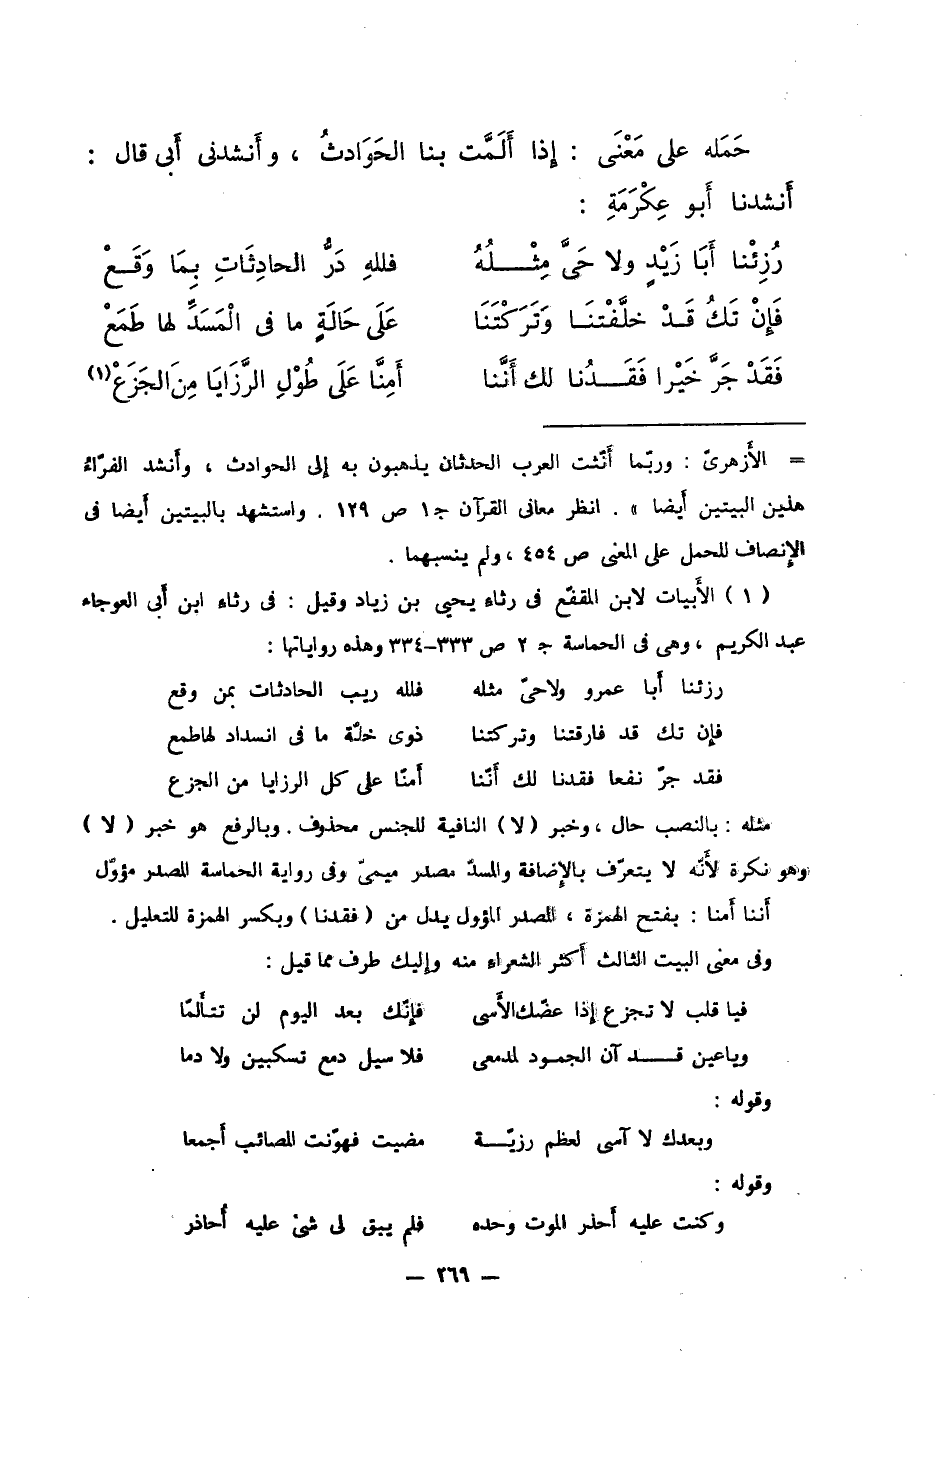 حَمَله على مَعْنَى : إذا أَلَمَّت بنا الحَوَادثُ ، وأَنشدنى أَبى قال :
أَنشدنا أَبو عِكْرَمَةِ :
رُزِئْنا أَبَا زَيْدٍ ولا حَىَّ مِثْـــلُهُ فللهِ دَرُّ الحادِثَاتِ بِمَا وَقَـعْ
فَإِنْ تَكُ قَـدْ خلَّفْتنَـا وَتَرَكْتَنَا عَلَى حَالَةٍ ما فى الْمَسَدِّ لها طَمَعْ
فَقَدْ جَرَّ خَيْرا فَقَـدُنا لك أَنَّنا أَمِنَّا عَلَى طُوْلِ الرَّزَايَا مِنَ الجَزَعْ(١)
= الأَزهرىّ : وربّما أَنّثت العرب الحدثان يذهبون به إلى الحوادث ، وأَنشد الفرّاءُ
هذين البيتين أَيضا » . انظر معانى القرآن جـ١ ص ١٢٩ . واستشهد بالبيتين أَيضا فى
الإِنصاف للحمل على المعنى ص ٤٥٤ ، ولم ينسبهما .
( ١ ) الأَبيات لابن المقفّع فى رثاء يحيى بن زياد وقيل : فى رثاء ابن أَبى العوجاء
عبد الكريم ، وهى فى الحماسة جـ ٢ ص ٣٣٣–٣٣٤ وهذه رواياتها :
رزئنا أَبا عمرو ولاحىّ مثله فلله ريب الحادثات بمن وقع
فإن تك قد فارقتنا وتركتنا ذوى خلّة ما فى انسداد لهاطمع
فقد جرّ نفعا فقدنا لك أَنّنا أَمنّا على كل الرزايا من الجزع
مثله : بالنصب حال ، وخبر (لا) النافية للجنس محذوف . وبالرفع هو خبر ( لا )
وهو نكرة لأَنّه لا يتعرّف بالإِضافة والمسدّ مصدر ميمىّ وفى رواية الحماسة المصدر مؤوّل
أَننا أَمنا : بفتح الهمزة ، المصدر المؤول بدل من ( فقدنا ) وبكسر الهمزة للتعليل .
وفى معنى البيت الثالث أَكثر الشعراء منه وإليك طرف مما قيل :
فيا قلب لا تجزع إذا عضّك الأَسى فإنّك بعد اليوم لن تتأَلمّا
وياعين قـــد آن الجمـود لمدمعى فلا سيل دمع تسكبين ولا دما
وقوله :
وبعدك لا آسى لعظم رزيّـــة مضيت فهوّنت المصائب أَجمعا
وقوله :
وكنت عليه أَحذر الموت وحده فلم يبق لى شىْ عليه أُحاذر
— ٢٦٩ —